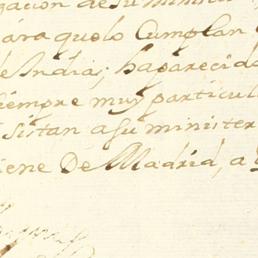 zacion de su minist
ára quelo Cumplan
de India; ha parecido
siempre muy particul
sistan a su minister
iene De Madrid, a